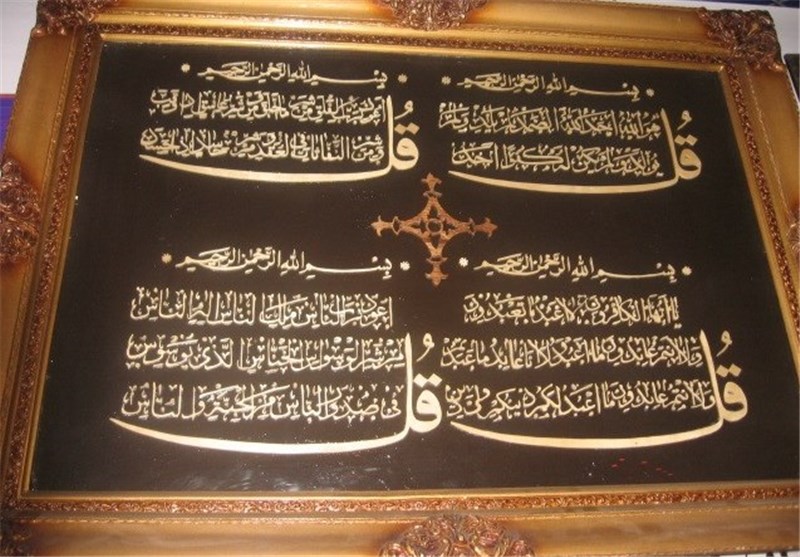 بسم الله الرحمن الرحيم
قل هو الله احد الله الصمد لم يلد ولم
يولد ولم يكن له كفوا احد
بسم الله الرحمن الرحيم
قل اعوذ برب الفلق من شر ما خلق ومن شر غاسق اذا وقب
ومن شر النفاثات في العقد ومن شر حاسد اذا حسد
بسم الله الرحمن الرحيم
قل يا ايها الكافرون لا اعبد ما تعبدون
ولا انتم عابدون ما اعبد ولا انا عابد ما عبدتم
ولا انتم عابدون ما اعبد لكم دينكم ولي دين
بسم الله الرحمن الرحيم
قل اعوذ برب الناس ملك الناس اله الناس
من شر الوسواس الخناس الذي يوسوس
في صدور الناس من الجنة والناس